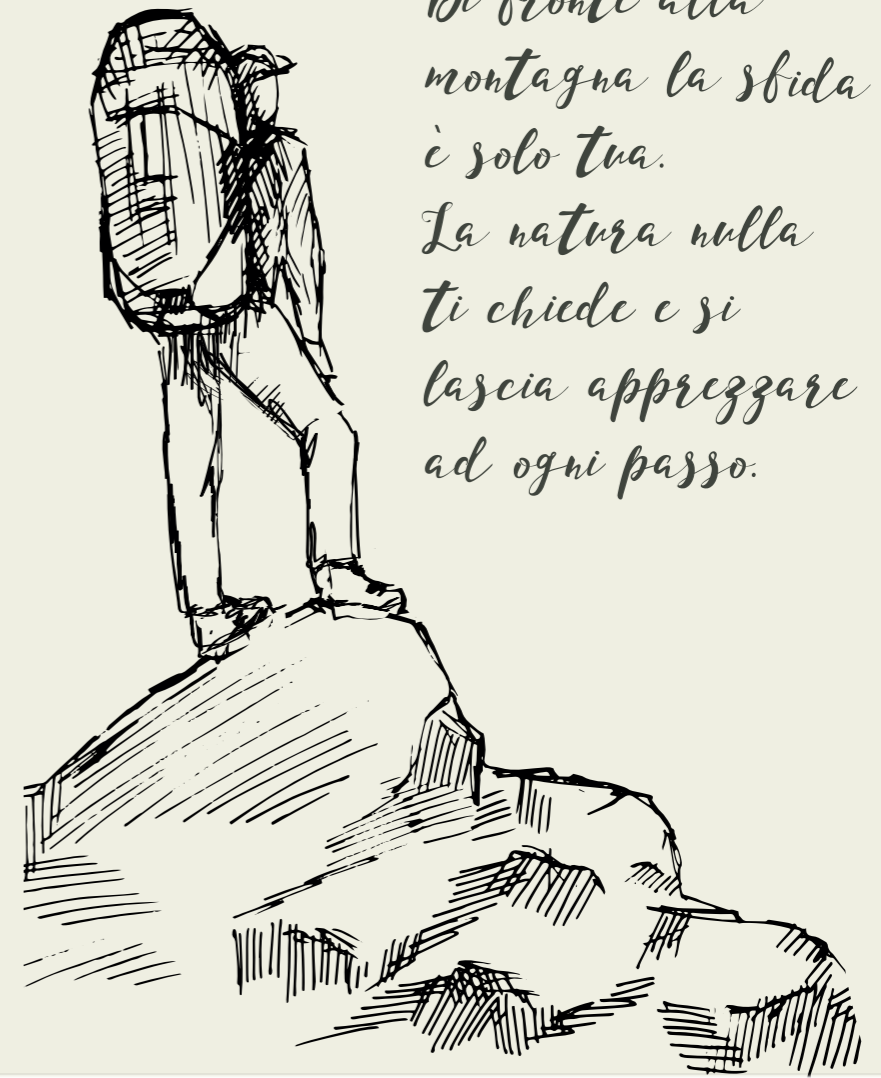 Di fronte alla
montagna la sfida
è solo tua.
La natura nulla
ti chiede e si
lascia apprezzare
ad ogni passo.